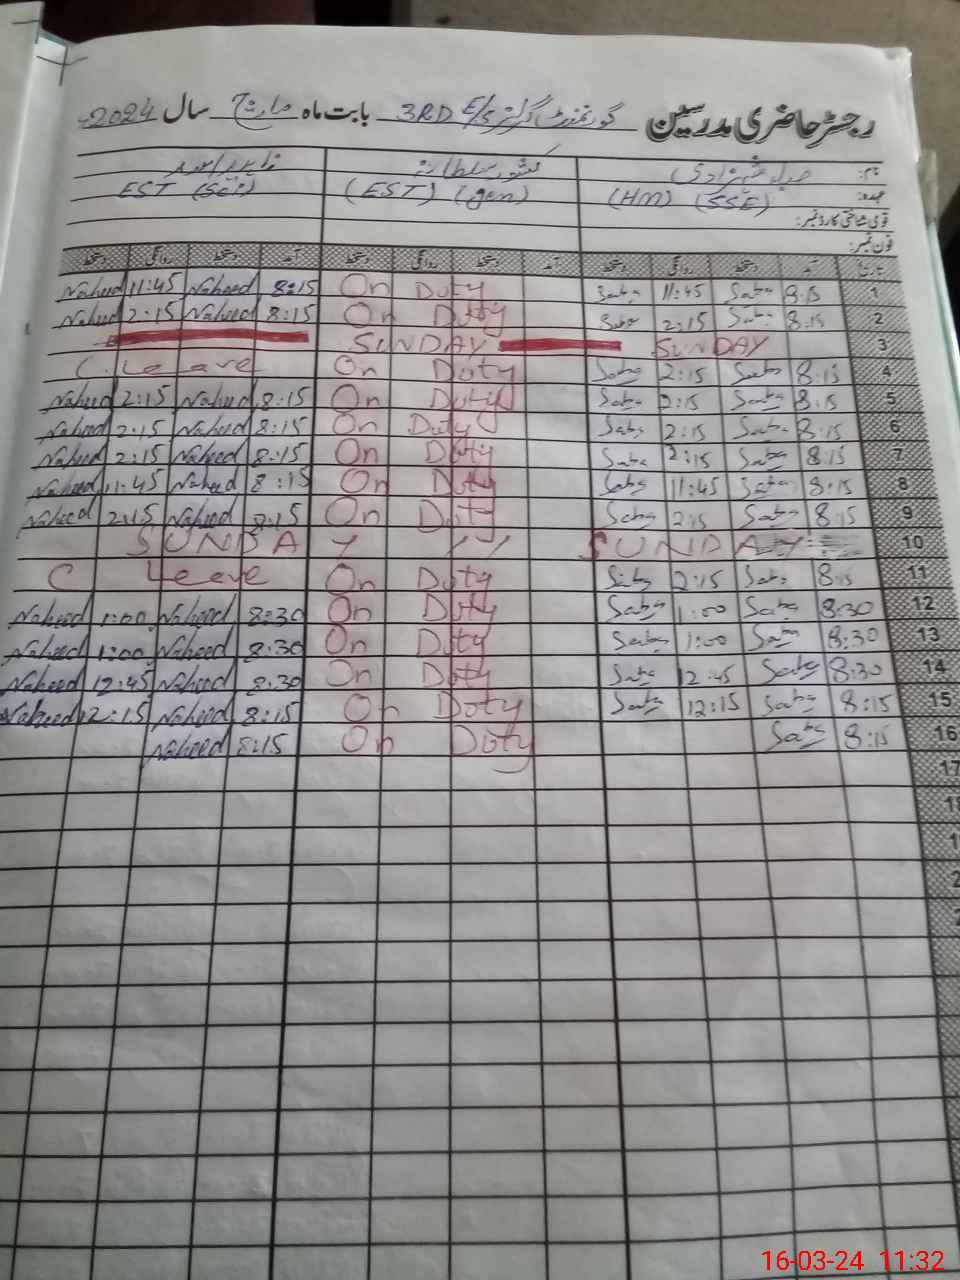 رجسٹر حاضری مدرسین گورنمنٹ گرلز 3RD E/S بابت ماہ مارچ سال 2024
نام: صباء شہزادی کشور سلطانہ
عہدہ: (HM) (SSE) (EST) (gen) EST (Sci)
قومی شناختی کارڈ نمبر:
فون نمبر:
تاریخ آمد دستخط روانگی دستخط آمد دستخط روانگی دستخط آمد دستخط روانگی دستخط
1 8:15 Saba 11:45 Saba On Duty 8:15 Naheed 11:45 Naheed
2 8:15 Saba 2:15 Saba On Duty 8:15 Naheed 2:15 Naheed
3 SUNDAY SUNDAY
4 8:15 Saba 2:15 Saba On Duty C. Leave
5 8:15 Saba 2:15 Saba On Duty 8:15 Naheed 2:15 Naheed
6 8:15 Saba 2:15 Saba On Duty 8:15 Naheed 2:15 Naheed
7 8:15 Saba 2:15 Saba On Duty 8:15 Naheed 2:15 Naheed
8 8:15 Saba 11:45 Saba On Duty 8:15 Naheed 11:45 Naheed
9 8:15 Saba 2:15 Saba On Duty 8:15 Naheed 2:15 Naheed
10 SUNDAY // SUNDAY
11 8:15 Saba 2:15 Saba On Duty C Leave
12 8:30 Saba 1:00 Saba On Duty 8:30 Naheed 1:00 Naheed
13 8:30 Saba 1:00 Saba On Duty 8:30 Naheed 1:00 Naheed
14 8:30 Saba 12:45 Saba On Duty 8:30 Naheed 12:45 Naheed
15 8:15 Saba 12:15 Saba On Duty 8:15 Naheed 12:15 Naheed
16 8:15 Saba On Duty 8:15 Naheed
17
16-03-24 11:32